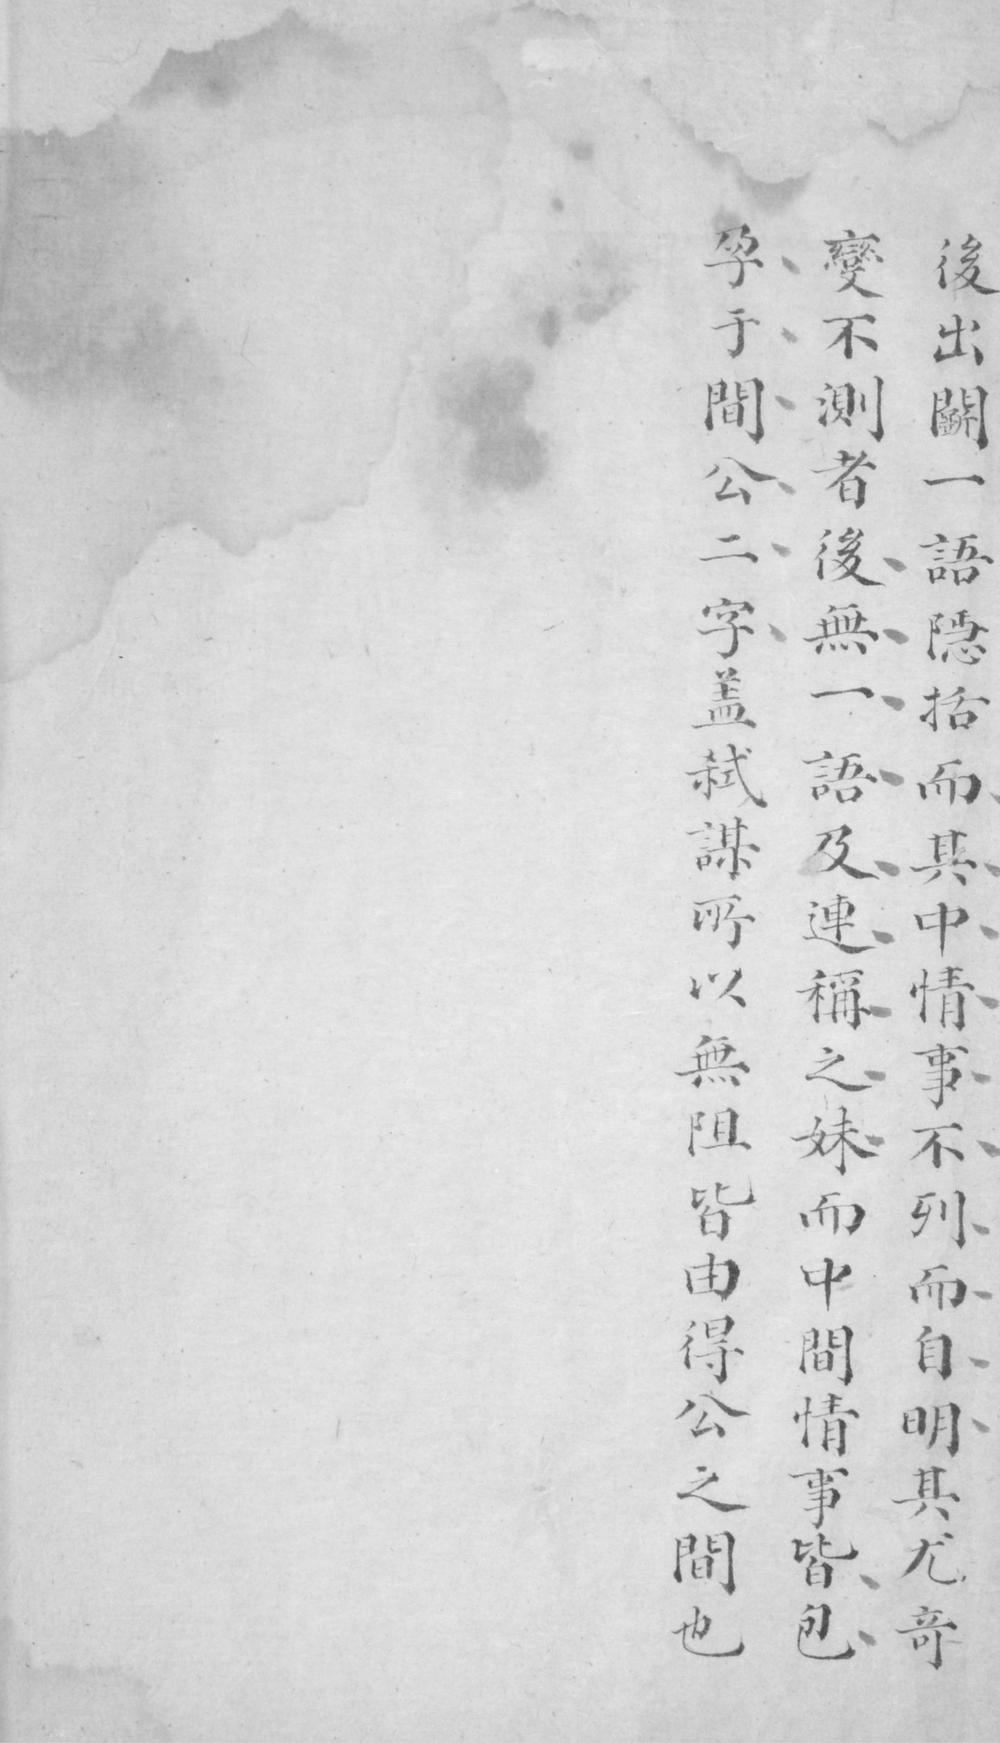 後出闘一語隱括而其中情事不列而自明其尤竒
變不測者後無一語及連稱之妹而中間情事皆包
孕于間公二字盖弑謀所以無阻皆由得公之間也